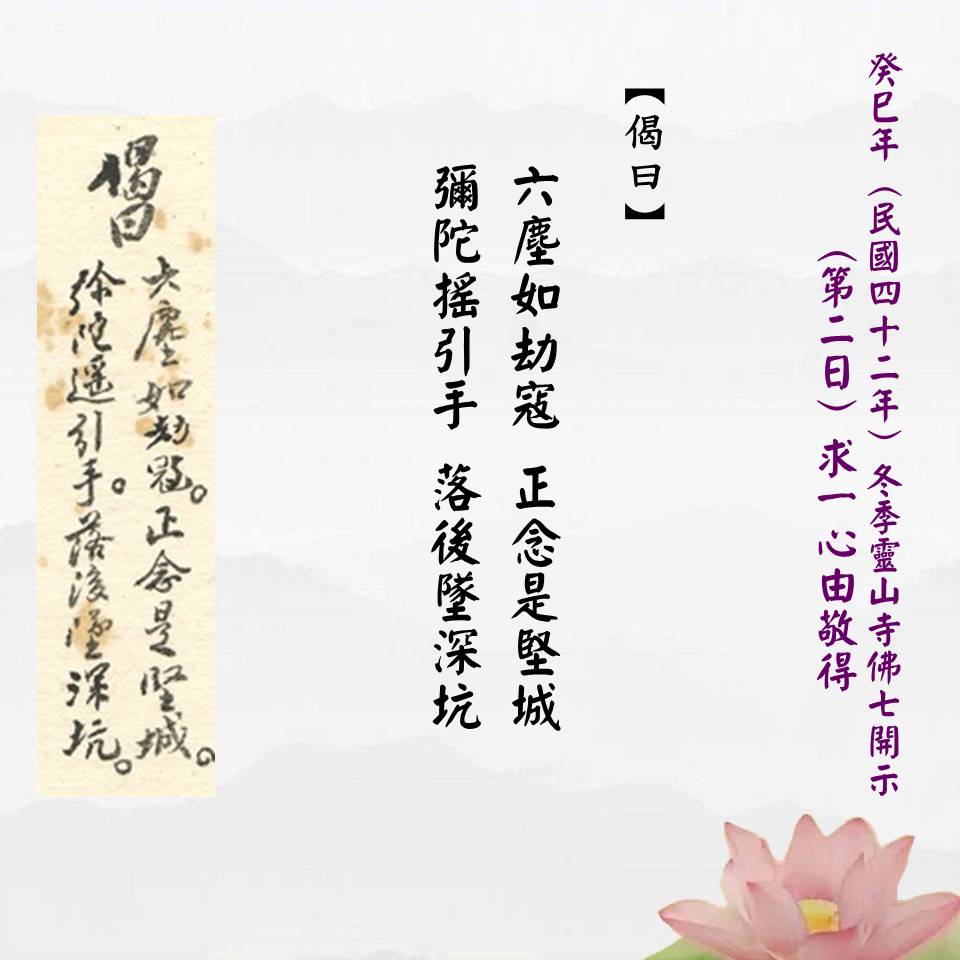 癸巳年（民國四十二年）冬季靈山寺佛七開示
（第二日）求一心由敬得
【偈曰】
六塵如劫寇 正念是堅城
彌陀摇引手 落後墜深坑
偈曰
六塵如劫寇。正念是堅城。
弥陀遥引手。落後墜深坑。